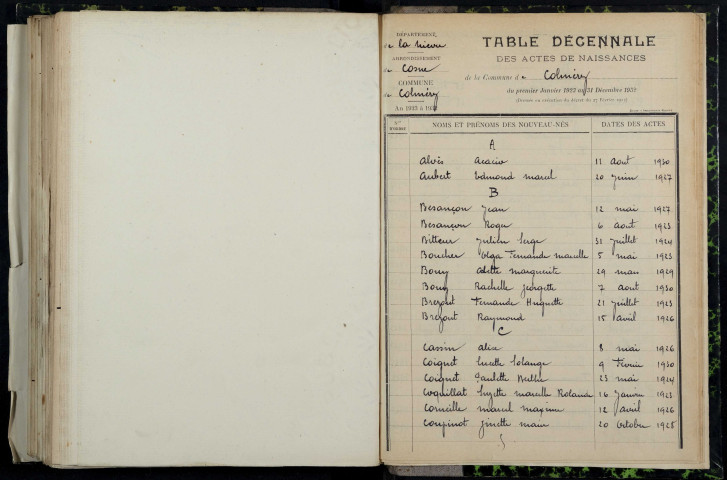 DÉPARTEMENT
de la Nièvre
ARRONDISSEMENT
de Cosne
COMMUNE
de Colméry
An 1923 à
TABLE DÉCENNALE
DES ACTES DE NAISSANCES
de la Commune de Colméry
du premier Janvier 1923 au 31 Décembre 1932
N° D'ORDRE NOMS ET PRÉNOMS DES NOUVEAU-NÉS DATES DES ACTES
A
Alvès Acacio 11 août 1930
Aubert Edmond Marcel 20 juin 1927
B
Besançon Jean 12 mai 1927
Besançon Roger 6 août 1923
Bitteur Julien Serge 31 juillet 1924
Boucher Olga Fernande Marcelle 5 mai 1923
Bouy Odette Marguerite 29 mars 1929
Bouy Rachelle Georgette 7 août 1930
Brezout Fernande Huguette 21 juillet 1923
Brezout Raymond 15 avril 1926
C
Cassin Alice 8 mai 1926
Coignet Lucette Solange 9 février 1930
Coignet Paulette 23 mai 1924
Coquillat Suzette Marcelle Rolande 16 janvier 1923
Corneille Marcel Maxime 12 avril 1926
Coupinot Ginette Marie 20 octobre 1928